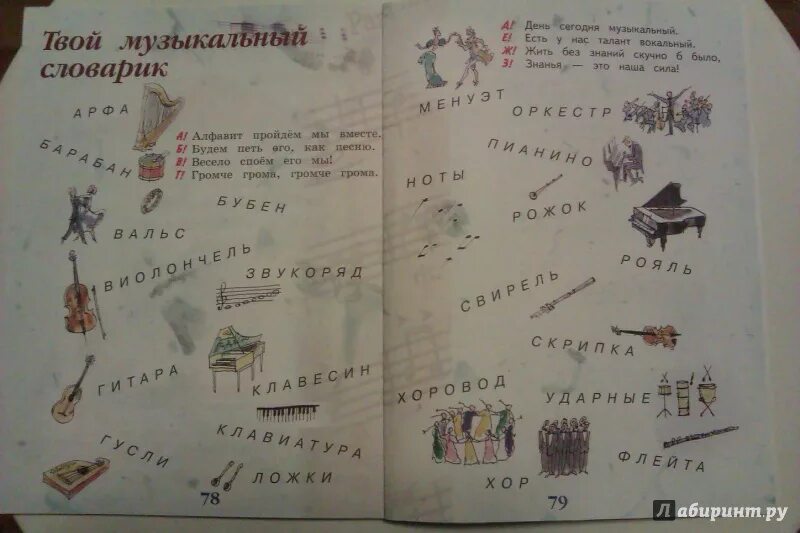 Твой музыкальный
словарик
АРФА
А! Алфавит пройдём мы вместе.
Б! Будем петь его, как песню.
В! Весело споём его мы!
Г! Громче грома, громче грома.
БАРАБАН
БУБЕН
ВАЛЬС
ВИОЛОНЧЕЛЬ
ЗВУКОРЯД
ГИТАРА
КЛАВЕСИН
КЛАВИАТУРА
ГУСЛИ
ЛОЖКИ
78
А! День сегодня музыкальный.
Е! Есть у нас талант вокальный.
Ж! Жить без знаний скучно б было,
З! Знанья — это наша сила!
МЕНУЭТ
ОРКЕСТР
ПИАНИНО
НОТЫ
РОЖОК
РОЯЛЬ
СВИРЕЛЬ
СКРИПКА
ХОРОВОД
УДАРНЫЕ
ФЛЕЙТА
ХОР
79
Лабиринт.ру